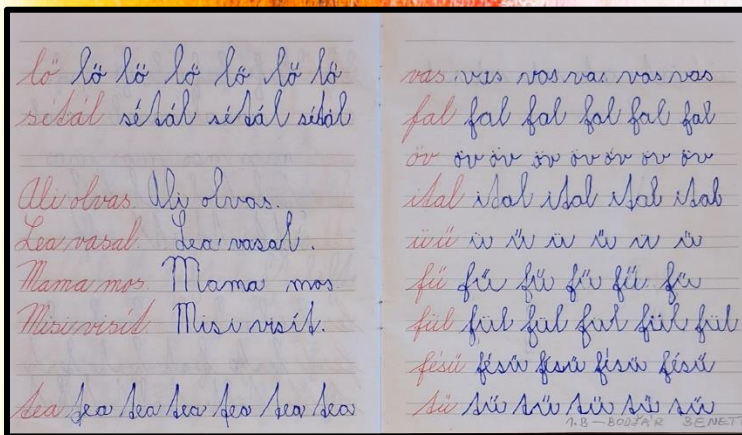 lő lő lő lő lő lő lő
sétál sétál sétál sétál
Ali olvas. Ali olvas.
Lea vasal. Lea vasal.
Mama mos. Mama mos.
Misi visít. Misi visít.
tea tea tea tea tea tea tea
vas vas vas vas vas vas
fal fal fal fal fal fal
öv öv öv öv öv öv öv öv
ital ital ital ital ital
ü ű ü ű ü ű ü ü
fű fű fű fű fű fű
fül fül fül fül fül fül
fésű fésű fésű fésű fésű
tű tű tű tű tű tű
1.B – BODZÁR BENETT